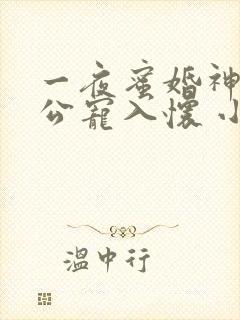 一夜蜜婚神
公寵入懷小
溫中行